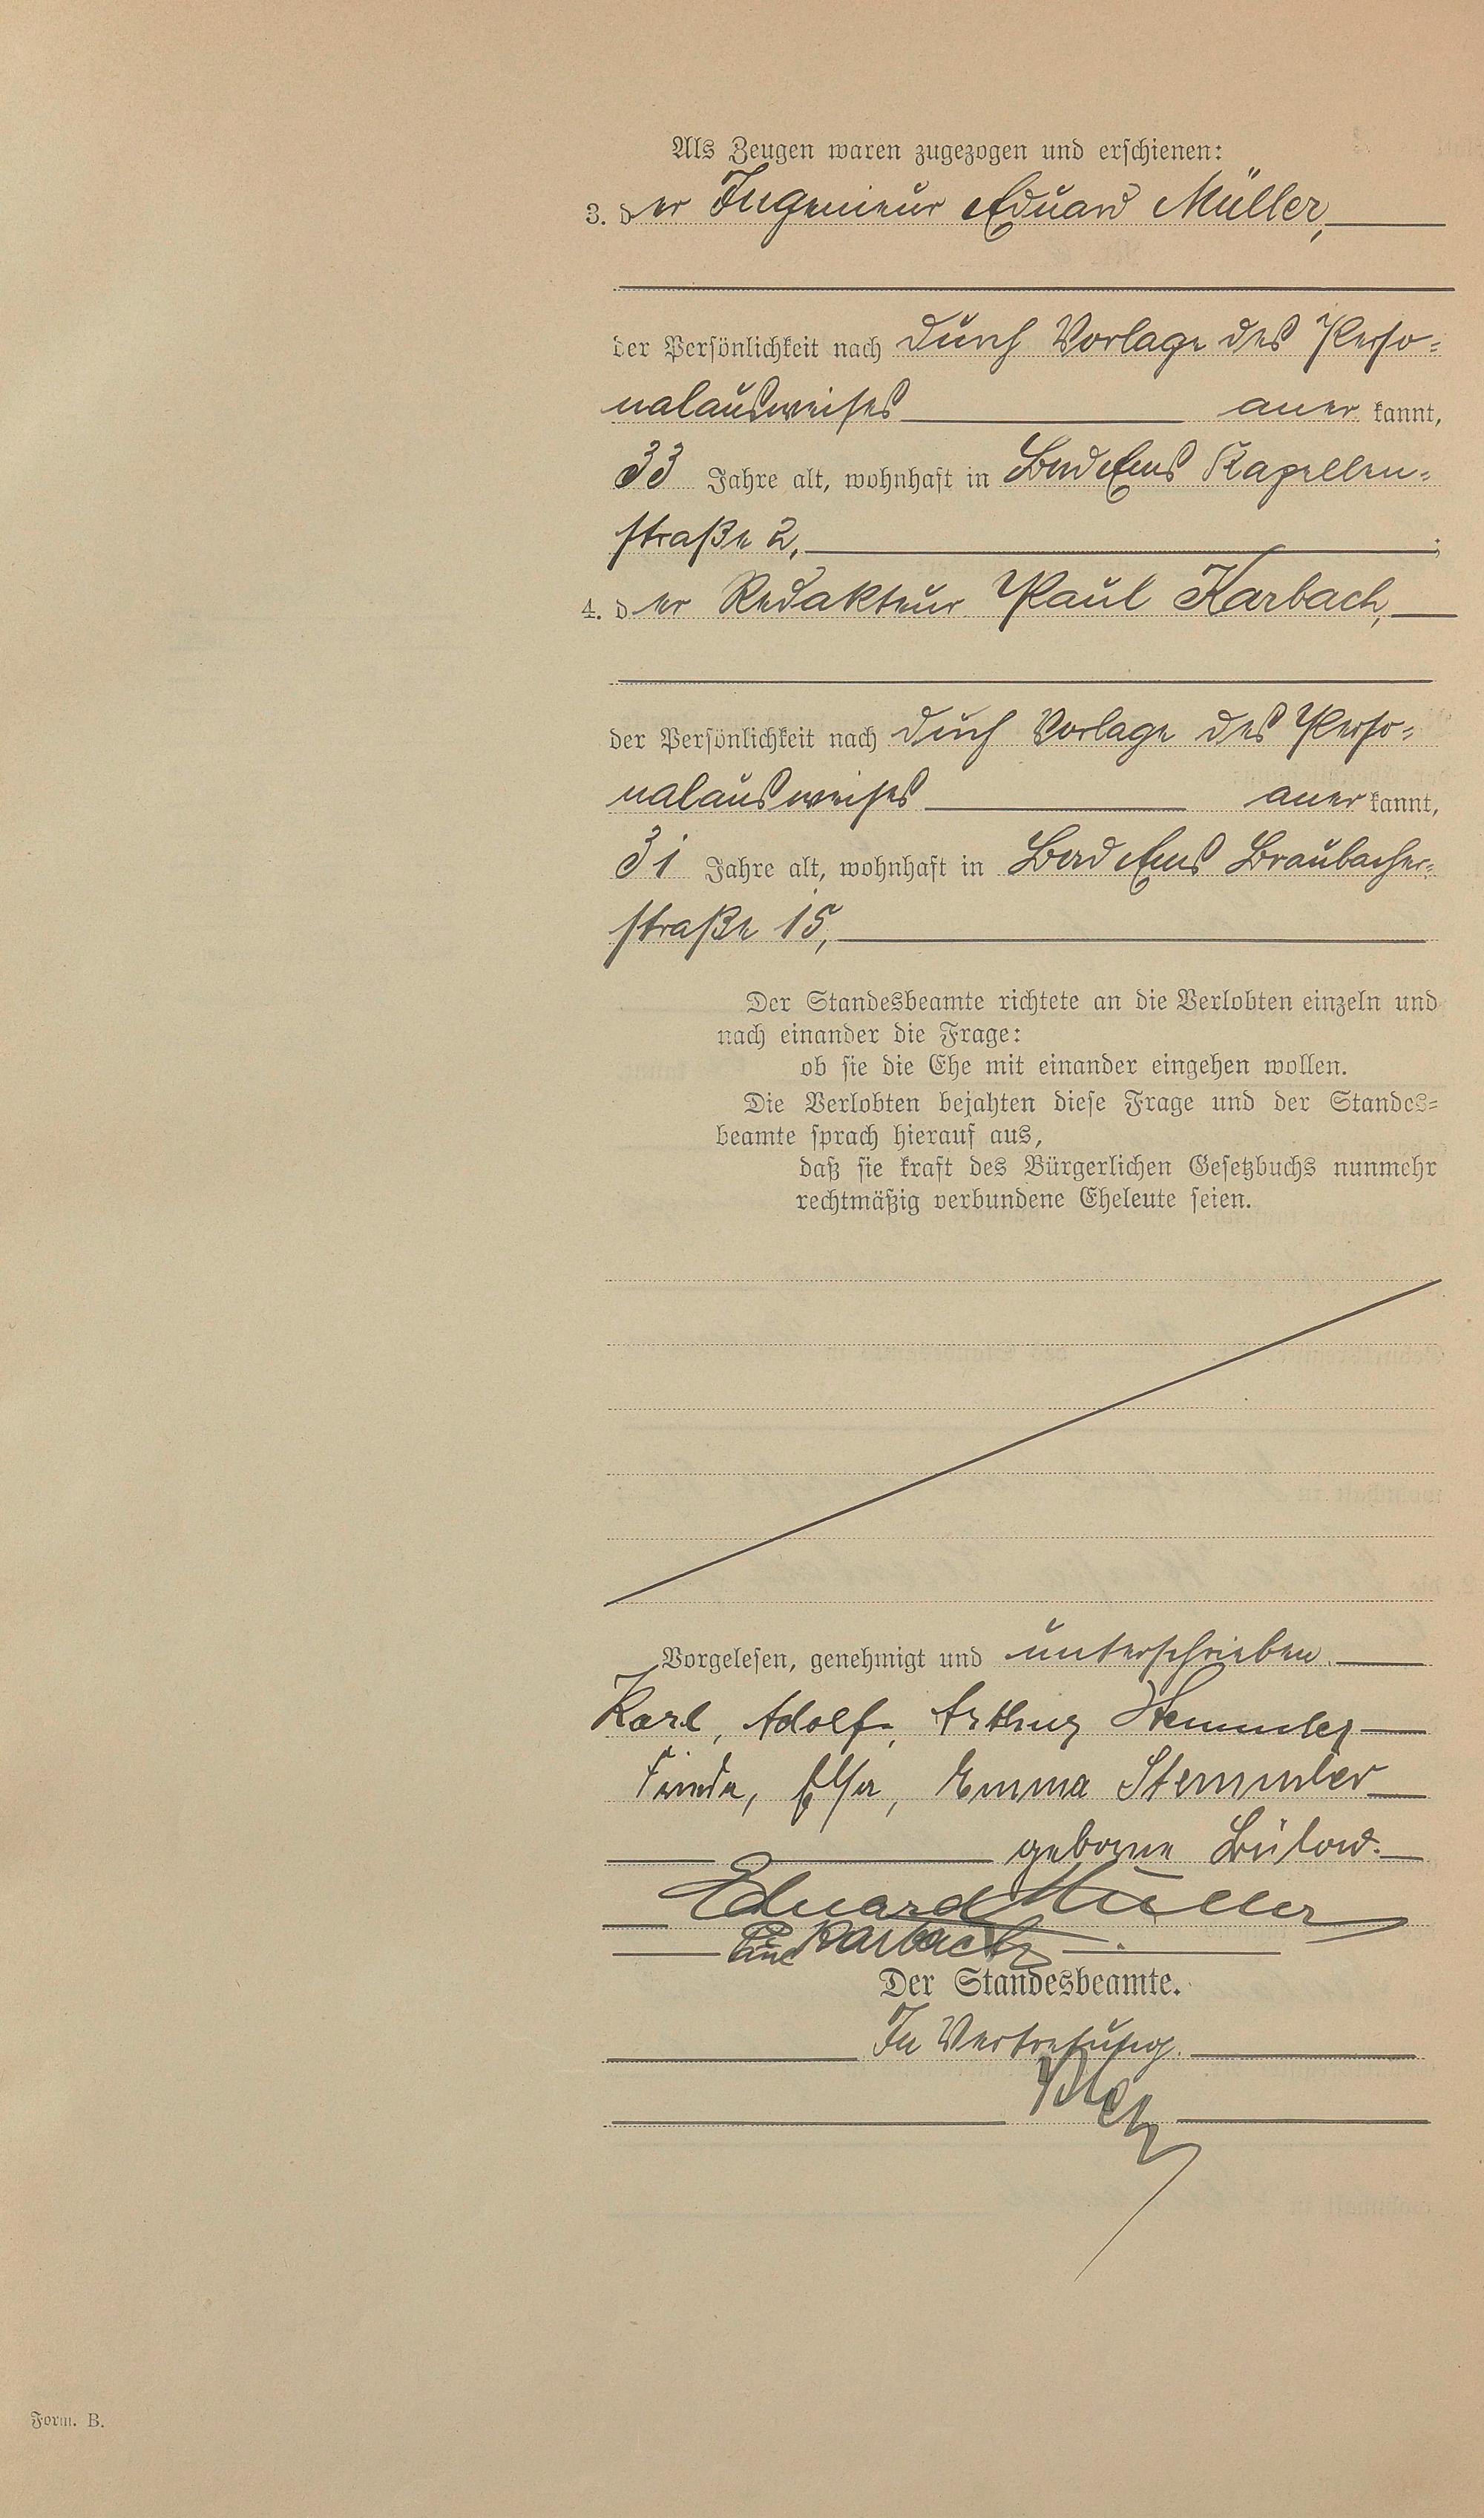 Als Zeugen waren zugezogen und erschienen:
3. der Ingenieur Eduard Müller,
der Persönlichkeit nach durch Vorlage des Perso=
nalausweises anerkannt,
33 Jahre alt, wohnhaft in Bad Ems Kapellen=
straße 2,;
4. der Redakteur Paul Karbach,
der Persönlichkeit nach durch Vorlage des Perso=
nalausweises anerkannt,
31 Jahre alt, wohnhaft in Bad Ems Braubacher=
straße 15,
Der Standesbeamte richtete an die Verlobten einzeln und
nach einander die Frage:
ob sie die Ehe mit einander eingehen wollen.
Die Verlobten bejahten diese Frage und der Standes=
beamte sprach hierauf aus,
daß sie kraft des Bürgerlichen Gesetzbuchs nunmehr
rechtmäßig verbundene Eheleute seien.
Vorgelesen, genehmigt und unterschrieben.
Karl, Adolf, Arthur Stemmler
Elsa, Emma Stemmler
geborne Bülow.
Eduard Müller
Paul Karbach
Der Standesbeamte.
In Vertretung.
Form. B.